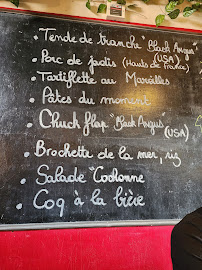 • Tende de tranche "Black Angus"
(USA)
• Porc de pays (Hauts de France)
• Tartiflette au Maroilles
• Pâtes du moment
• Chuck flap "Black Angus"
(USA)
• Brochette de la mer, riz
• Salade "Cochonne
• Coq à la bière